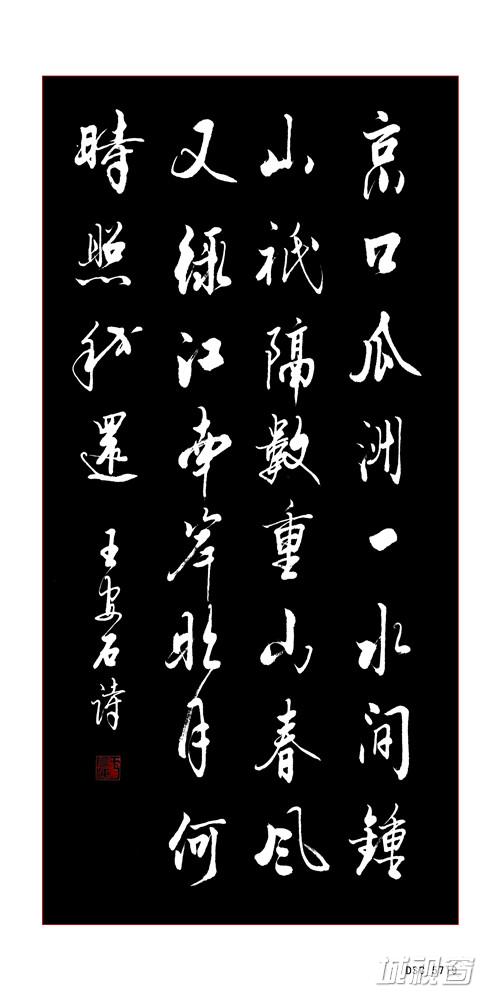 京口瓜洲一水间鍾
山祗隔數重山春风
又绿江南岸明月何
時照我還
王安石詩
城视窗